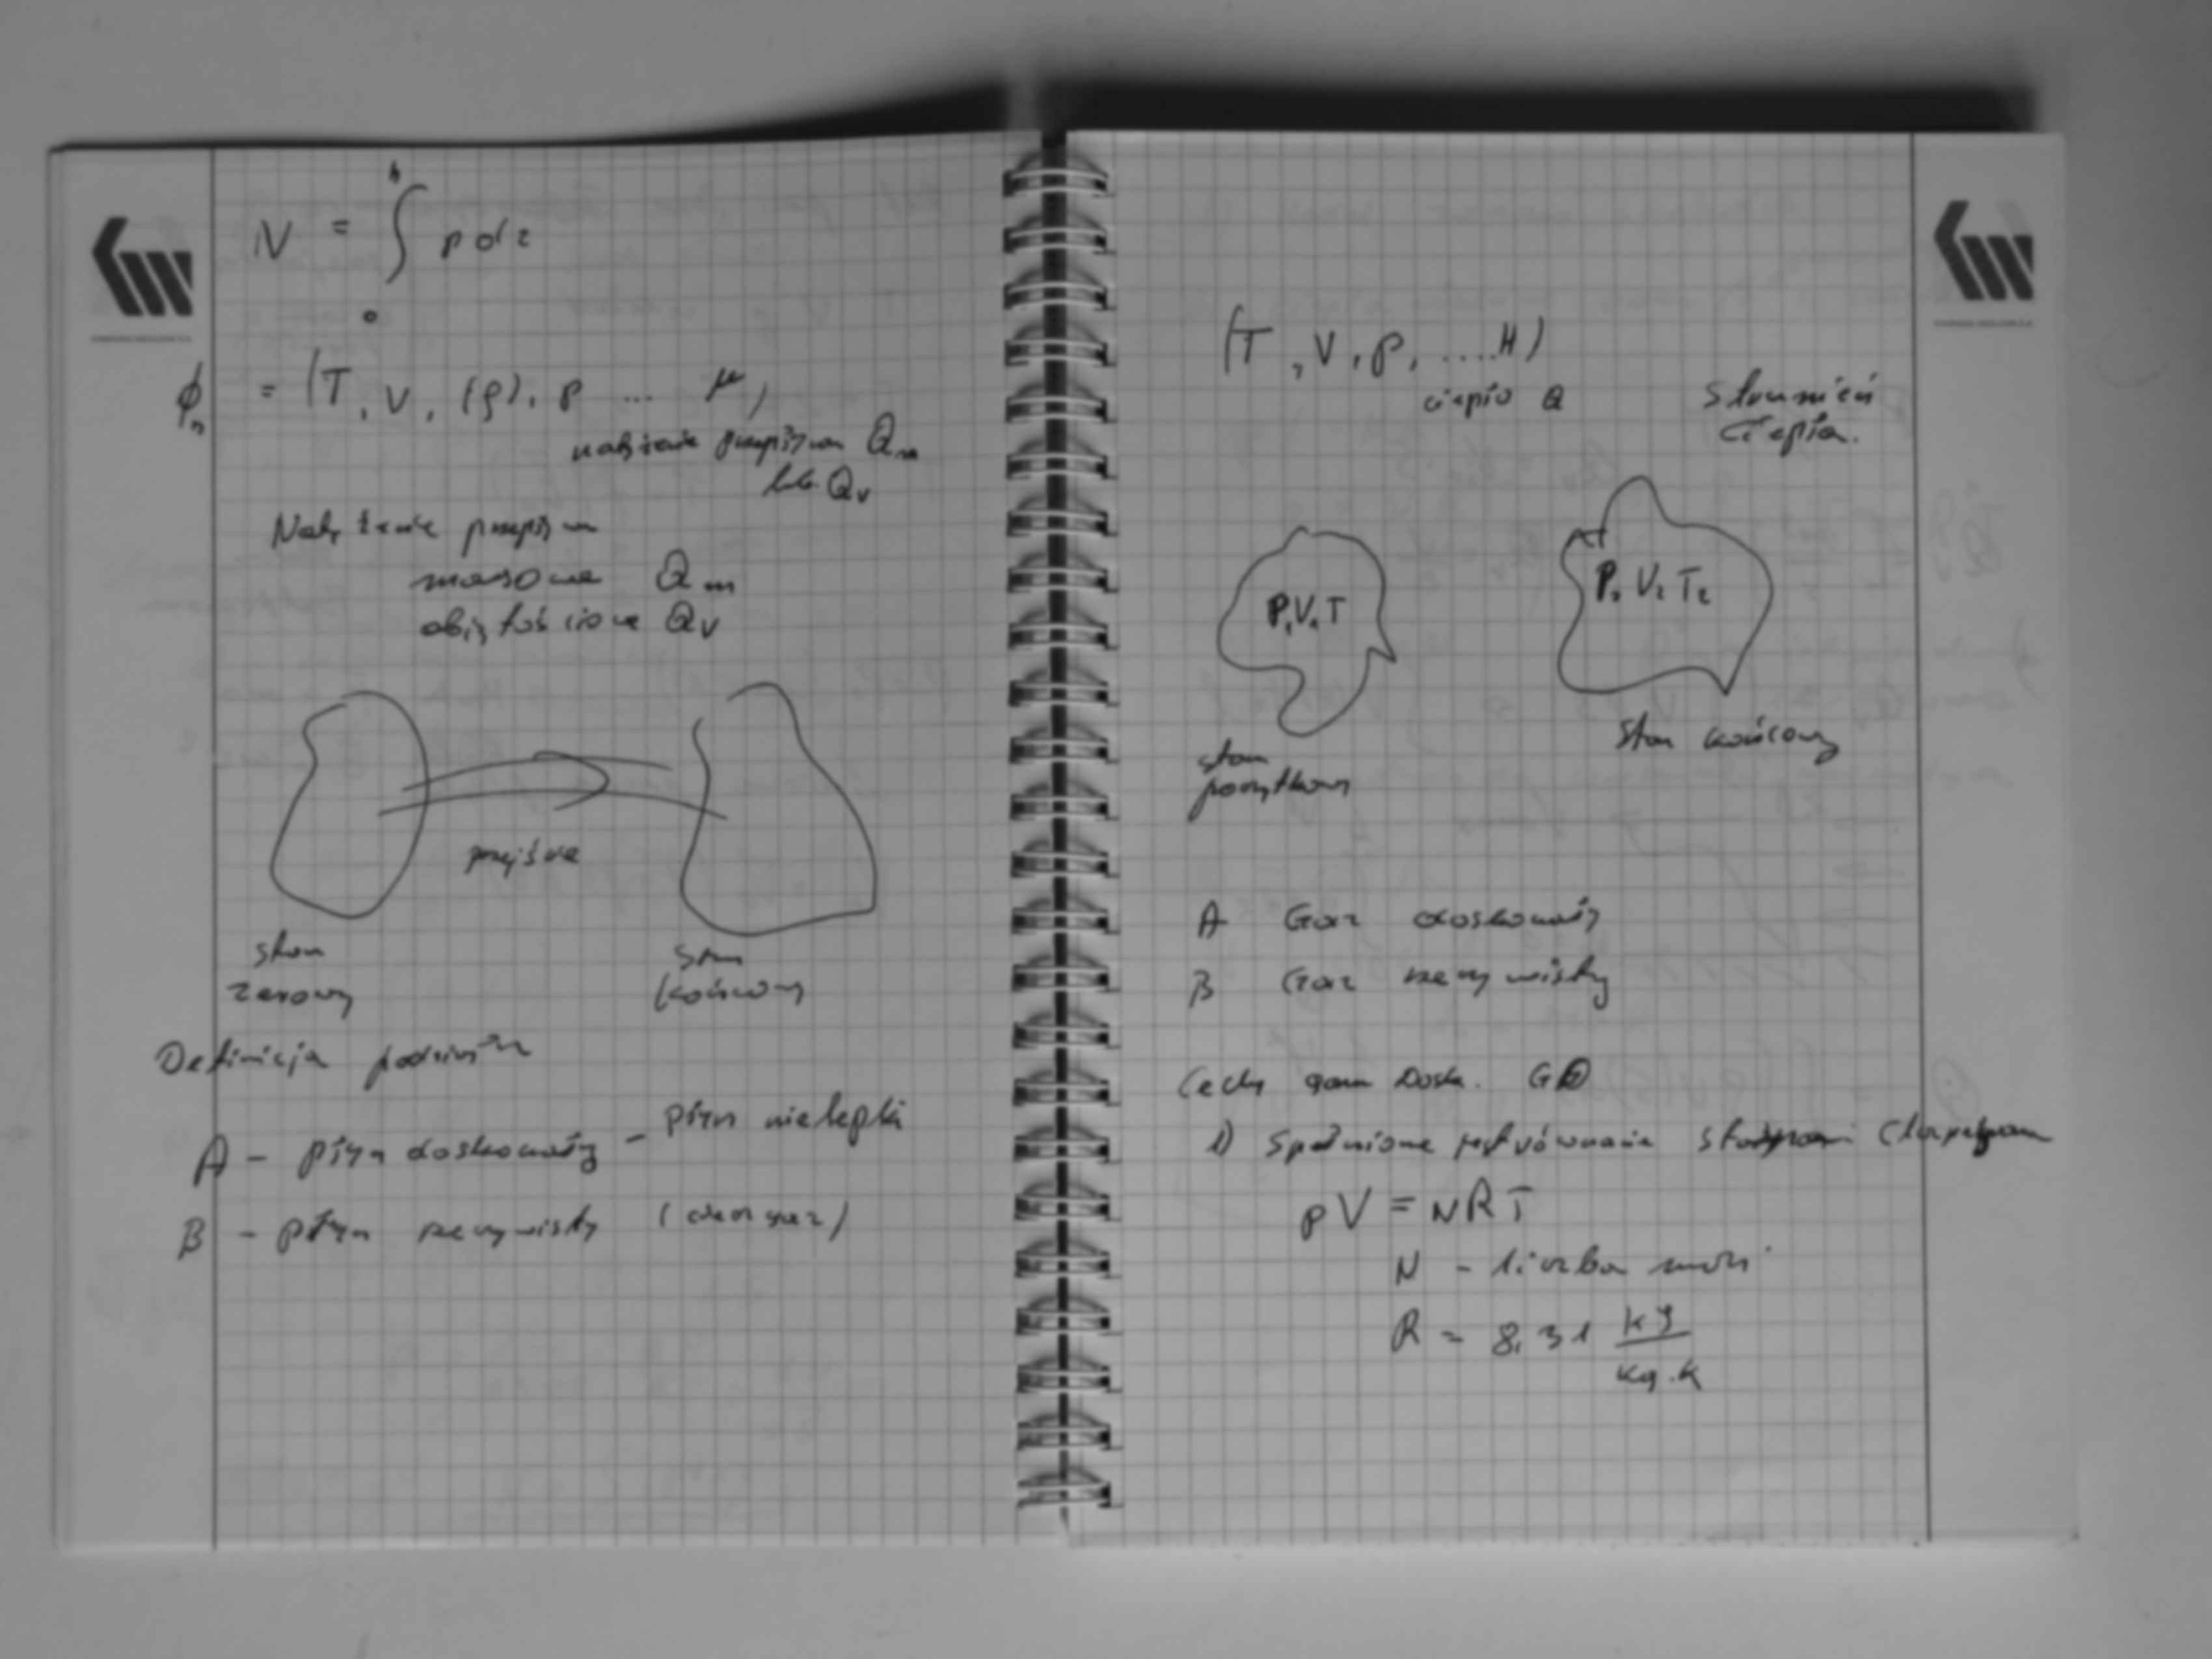 N = ∫ p dz
h
o
ϕn = (T, V, (ρ), p ... μ)
natężenie przepływu Qm
lub Qv
Natężenie przepływu
masowe Qm
objętościowe Qv
przejście
stan
zerowy
stan
końcowy
Definicja
A - płyn doskonały - płyn nielepki
B - płyn rzeczywisty
(T, V, p, .... H)
ciepło Q
Strumień
ciepła.
P1 V1 T
P2 V2 T2
stan
początkowy
stan końcowy
A Gaz doskonały
B Gaz rzeczywisty
Cechy gazu Dosk. GD
1) Spełnione jest równanie Clapeyrona
pV = NRT
N - liczba moli
R = 8,31 kJ
kg.K